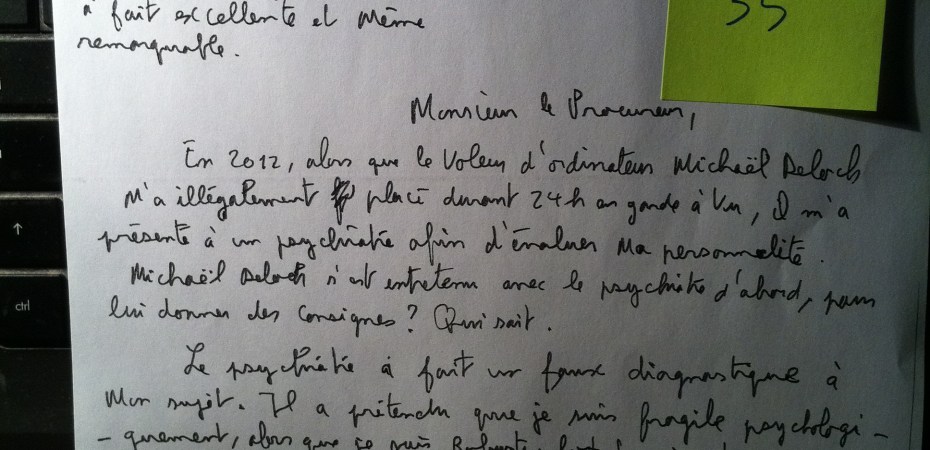 à fait excellente et même
remarquable.
Monsieur le Procureur,
En 2012, alors que le Voleur d'ordinateur Michaël Deloch
M'a illégalement placé durant 24h en garde à Vue, Il m'a
présenté à un psychiatre afin d'évaluer Ma personnalité.
Michaël Deloch s'est entretenu avec le psychiatre d'abord, pour
lui donner des Consignes? Qui sait.
Le psychiatre à fait un faux diagnostique à
Mon sujet. Il a prétendu que je suis fragile psychologi-
-quement, alors que je suis Robuste
↑
ctrl